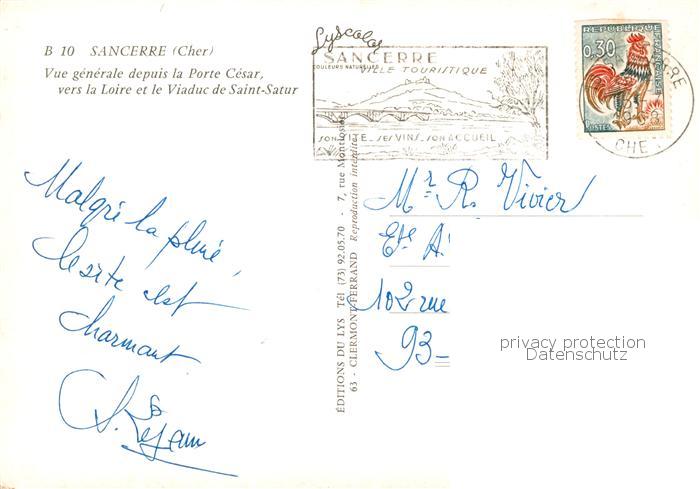 B 10 SANCERRE (Cher)
Vue générale depuis la Porte César,
vers la Loire et le Viaduc de Saint-Satur
Lyscolor
COULEURS NATURELLES
SANCERRE
VILLE TOURISTIQUE
SON SITE _ SES VINS _ SON ACCUEIL
REPUBLIQUE FRANÇAISE
0,30
POSTES
CHER
ÉDITIONS DU LYS Tél (73) 92.05.70 - 7, rue Montlosier
63 - CLERMONT-FERRAND Reproduction interdite
Malgré la pluie,
le site est
charmant
Mr R. Vivier
102 rue
93
privacy protection
Datenschutz